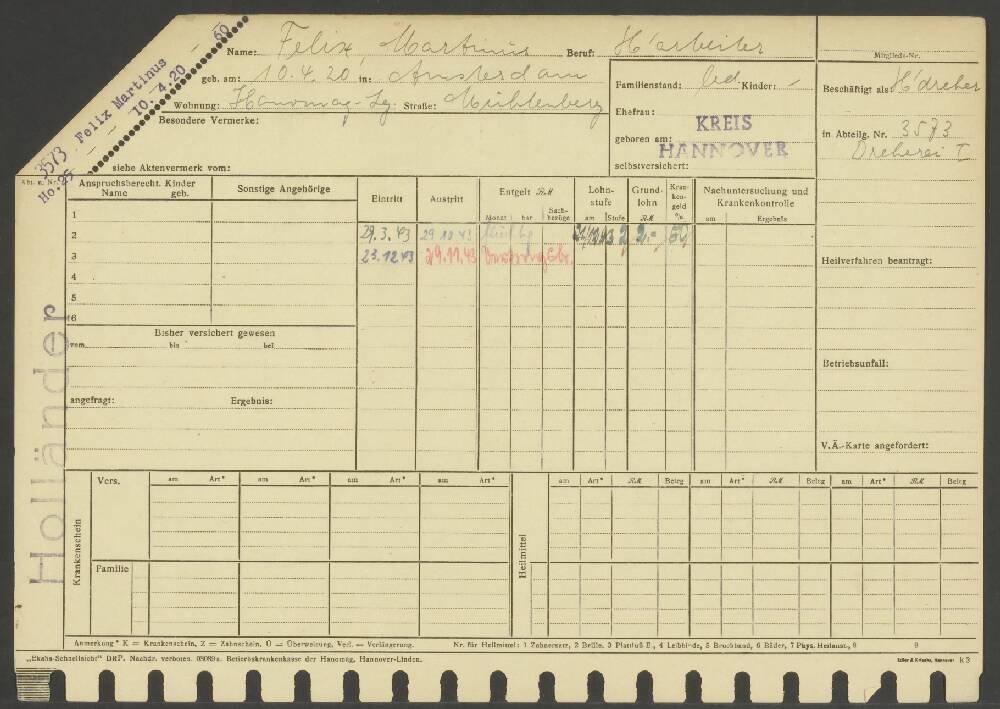 3573 Felix Martinus 60
Ho. 25 — 10.4.20 —
Name: Felix, Martinus Beruf: H'arbeiter
geb. am: 10.4.20 in: Amsterdam
Wohnung: Hanomag-Lg. Straße: Mühlenberg
Besondere Vermerke:
siehe Aktenvermerk vom:
Familienstand: led. Kinder: -
Ehefrau:
geboren am:
KREIS
HANNOVER
selbstversichert:
Mitglieds-Nr.
Beschäftigt als H'dreher
in Abteilg. Nr. 3573
Dreherei I
Heilverfahren beantragt:
Betriebsunfall:
V.Ä.-Karte angefordert:
Abt. u. Nr.
Holländer
Anspruchsberecht. Kinder
Name geb.
Sonstige Angehörige
1
2
3
4
5
6
Eintritt Austritt Entgelt RM Lohn-stufe Grund-lohn Kran-ken-geld %
Monat bar Sach-bezüge am Stufe RM
Nachuntersuchung und
Krankenkontrolle
am Ergebnis
29.3.43 29.10.43 2 2.- 50
23.12.43 29.11.43
Bisher versichert gewesen
vom bis bei
angefragt: Ergebnis:
Krankenschein
Vers. am Art* am Art* am Art* am Art*
Familie
Heilmittel
am Art* RM Beleg am Art* RM Beleg am Art* RM Beleg
Anmerkung * K = Krankenschein, Z = Zahnschein, Ü = Überweisung, Verl. = Verlängerung.
Nr. für Heilmittel: 1 Zahnersatz, 2 Brille, 3 Plattfuß E., 4 Leibbinde, 5 Bruchband, 6 Bäder, 7 Phys. Heilanst., 8 9
„Ekaha-Schnellsicht" DRP. Nachdr. verboten. Betriebskrankenkasse der Hanomag, Hannover-Linden.
K 3